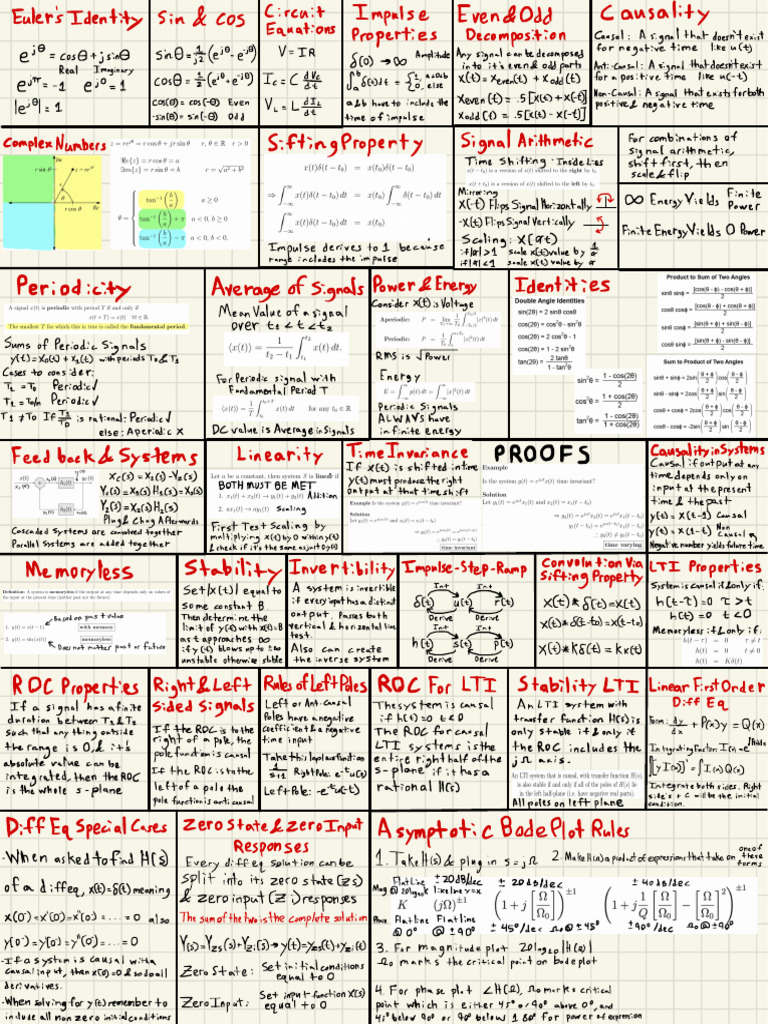 Euler's Identity
e^{jθ} = cosθ + jsinθ
Real Imaginary
e^{jπ} = -1 e^{j0} = 1
|e^{jθ}| = 1
Sin & cos
sinθ = 1/j2 (e^{jθ} - e^{-jθ})
cosθ = 1/2 (e^{jθ} + e^{-jθ})
cos(θ) = cos(-θ) Even
-sin(θ) = sin(-θ) Odd
Circuit
Equations
V = IR
I_c = C dV_c/dt
V_L = L dI_L/dt
Impulse
Properties
δ(0) → ∞ Amplitude
∫_a^b δ(t)dt = {1, a≤0≤b
0, else
a & b have to include the
time of impulse
Even & Odd
Decomposition
Any signal can be decomposed
in to it's even & odd parts
x(t) = x_even(t) + x_odd(t)
x_even(t) = .5[x(t) + x(-t)]
x_odd(t) = .5[x(t) - x(-t)]
Causality
Causal: A signal that doesn't exist
for negative time like u(t)
Anti-Causal: A signal that doesn't exist
for a positive time like u(-t)
Non-Causal: A signal that exists for both
positive & negative time
Complex Numbers
z = re^{jθ} = r cos θ + jr sin θ r, θ ∈ ℝ r > 0
Im
r sin θ
z = re^{jθ}
r cos θ
Re
Re{z} = r cos θ = a
Im{z} = r sin θ = b
r = √(a² + b²)
θ = { tan⁻¹(b/a) a ≥ 0
tan⁻¹(b/a) + π a < 0, b ≥ 0
tan⁻¹(b/a) - π a < 0, b < 0.
Sifting Property
x(t)δ(t - t₀) = x(t₀)δ(t - t₀)
⇒ ∫_{-∞}^{∞} x(t)δ(t - t₀) dt = x(t₀) ∫_{-∞}^{∞} δ(t - t₀) dt
∫_{-∞}^{∞} x(t)δ(t - t₀) dt = x(t₀)
Impulse derives to 1 because
range includes the impulse
Signal Arithmetic
Time Shifting: Inside Lies
x(t - t₀) is a version of x(t) shifted to the right by t₀
x(t + t₀) is a version of x(t) shifted to the left by t₀
Mirroring
x(-t) Flips Signal Horizontally
-x(t) Flips Signal Vertically
Scaling: x(at)
if |a|>1 scale x(t) value by 1/a
if |a|<1 scale x(t) value by a
For combinations of
signal arithmetic,
shift first, then
scale & flip
∞ Energy Yields Finite
Power
Finite Energy Yields 0 Power
Periodicity
A signal x(t) is periodic with period T if and only if
x(t + T) = x(t) ∀t ∈ ℝ
The smallest T for which this is true is called the fundamental period.
Sums of Periodic Signals
y(t) = x₀(t) + x₁(t) with periods T₀ & T₁
Cases to consider:
T₁ = T₀ Periodic √
T₁ = T₀/n Periodic √
T₁ ≠ T₀ If T₁/T₀ is rational: Periodic √
else: Aperiodic X
Average of Signals
Mean Value of a signal
over t₁ < t < t₂
⟨x(t)⟩ = 1/(t₂ - t₁) ∫_{t₁}^{t₂} x(t) dt.
For Periodic signal with
Fundamental Period T
⟨x(t)⟩ = 1/T ∫_{t₀}^{t₀+T} x(t) dt for any t₀ ∈ ℝ
DC value is Average in Signals
Power & Energy
Consider x(t) is Voltage
Aperiodic: P = lim_{T→∞} 1/T ∫ |x(t)|² dt
Periodic: P = 1/T ∫ |x(t)|² dt
RMS is √Power
Energy
E = ∫ p(t) dt = ∫ |x(t)|² dt
Periodic Signals
ALWAYS have
infinite energy
Identities
Double Angle Identities
sin(2θ) = 2 sinθ cosθ
cos(2θ) = cos²θ - sin²θ
cos(2θ) = 2 cos²θ - 1
cos(2θ) = 1 - 2 sin²θ
tan(2θ) = 2 tanθ / 1 - tan²θ
sin²θ = 1 - cos(2θ) / 2
cos²θ = 1 + cos(2θ) / 2
tan²θ = 1 - cos(2θ) / 1 + cos(2θ)
Product to Sum of Two Angles
sinθ sinφ = [cos(θ - φ) - cos(θ + φ)] / 2
cosθ cosφ = [cos(θ - φ) + cos(θ + φ)] / 2
sinθ cosφ = [sin(θ + φ) + sin(θ - φ)] / 2
Sum to Product of Two Angles
sinθ + sinφ = 2sin((θ + φ)/2) cos((θ - φ)/2)
Feedback & Systems
X_C(s) = X₁(s) - Y₂(s)
Y₁(s) = X₁(s)H₁(s)
Y₂(s) = X₂(s)H₂(s)
Plug & Chug Afterwards
Cascaded Systems are convolved together
Parallel Systems are added together
Linearity
Let α be a constant, then system S is linear if
BOTH MUST BE MET
1. x₁(t) + x₂(t) → y₁(t) + y₂(t) Addition
2. αx₁(t) → αy₁(t) Scaling
First Test Scaling by
multiplying x(t) by α within y(t)
& check if it's the same as just αy(t)
Time Invariance
If x(t) is shifted in time
y(t) must produce the right
output at that time shift
Example Is the system y(t) = x(t) time invariant?
Solution
time invariant
PROOFS
Example
Is the system y(t) = e^{jωt}x(t) time invariant?
Solution
Let y₁(t) = e^{jωt}x₁(t) and x₁(t) = x(t - t₀)
time varying
Causality in Systems
Causal if output at any
time depends only on
input at the present
time & the past
y(t) = x(t-1) Causal
y(t) = x(t+1) Non
Causal
Negative number yields future time
Memoryless
Definition: A system is memoryless if the output at any time depends only on values of
the input at the present time (neither past nor the future).
Based on past value
1. y(t) = x(t - 1) with memory
2. y(t) = sin[x(t)] memoryless
Does not matter past or future
Stability
Set |x(t)| equal to
some constant B
Then determine the
limit of y(t) with x(t)=B
as t approaches ∞
if y(t) blows up to ∞
unstable otherwise stable
Invertibility
A system is invertible
if every input has a distinct
output. Passes both
vertical & horizontal line
test.
Also can create
the inverse system
Impulse-Step-Ramp
Int Int
δ(t) u(t) r(t)
Derive Derive
Int Int
h(t) s(t) p(t)
Derive Derive
Convolution Via
Sifting Property
x(t)*δ(t) = x(t)
x(t)*δ(t-t₀) = x(t-t₀)
x(t)*Kδ(t) = Kx(t)
LTI Properties
System is causal if & only if:
h(t-τ) = 0 τ > t
h(t) = 0 t < 0
Memoryless if & only if:
h(t - τ) = 0 τ ≠ t
h(t) = 0 t ≠ 0
h(t) = Kδ(t)
ROC Properties
If a signal has a finite
duration between T₁ & T₂
such that any thing outside
the range is 0, & it's
absolute value can be
integrated, then the ROC
is the whole s-plane
Right & Left
Sided Signals
If the ROC is to the
right of a pole, the
pole function is causal
If the ROC is to the
left of a pole the
pole function is anti causal
Rules of Left Poles
Left or Anti-causal
Poles have a negative
coefficient & a negative
time input
Take this laplace function
1/(s+1) Right Pole: e^{-t}u(t)
Left Pole: -e^{-t}u(-t)
ROC For LTI
The system is causal
if h(t) = 0 t < 0
The ROC for causal
LTI systems is the
entire right half of the
s-plane if it has a
rational H(s)
Stability LTI
An LTI system with
transfer function H(s) is
only stable if & only if
the ROC includes the
jΩ axis.
An LTI system that is causal, with transfer function H(s) is
also stable if and only if all of the poles of H(s) lie
in the left half-plane (i.e. have negative real parts).
All poles on left plane
Linear First Order
Diff Eq
Form: dy/dx + P(x)y = Q(x)
Integrating factor: I(x) = e^{∫P(x)dx}
∫[y I(x)]' = ∫I(x)Q(x)
Integrate both sides. Right
side's + C will be the initial
condition.
Diff Eq Special Cases
-When asked to find H(s)
of a diffeq, x(t) = δ(t) meaning
x(0⁻) = x'(0⁻) = x''(0⁻) = ... = 0 also
y(0⁻) = y'(0⁻) = y''(0⁻) = ... = 0
-If a system is causal with a
causal input, then x(0⁻) = 0 & so do all
derivatives.
-When solving for y(t) remember to
include all non zero initial conditions
Zero State & Zero Input
Responses
Every diff eq solution can be
split into its zero state (zs)
& zero input (zi) responses
The sum of the two is the complete solution
Y(s) = Y_zs(s) + Y_zi(s) → y(t) = y_zs(t) + y_zi(t)
Zero State: Set initial conditions
equal to 0
Zero Input: Set input function X(s)
equal to 0
Asymptotic Bode Plot Rules
1. Take H(s) & plug in s = jΩ 2. Make H(Ω) a product of expressions that take on one of these forms
Flatline ± 20dB/dec ± 20dB/dec ± 40dB/dec
Mag @ 20log₁₀K like line y=x
K (jΩ)^{±1} (1 + j[Ω/Ω₀])^{±1} (1 + j 1/Q [Ω/Ω₀] - [Ω/Ω₀]²)^{±1}
Phase Flatline Flatline
@ 0° @ ± 90° ± 45°/dec Ω₀ @ ± 45° ± 90°/dec Ω₀ @ ± 90°
3. For magnitude plot 20log₁₀|H(Ω)|
Ω₀ marks the critical point on bode plot
4. For phase plot ∠H(Ω), Ω₀ marks critical
point which is either 45° or 90° above 0°, and
45° below 90° or 90° below 180° for power of expression